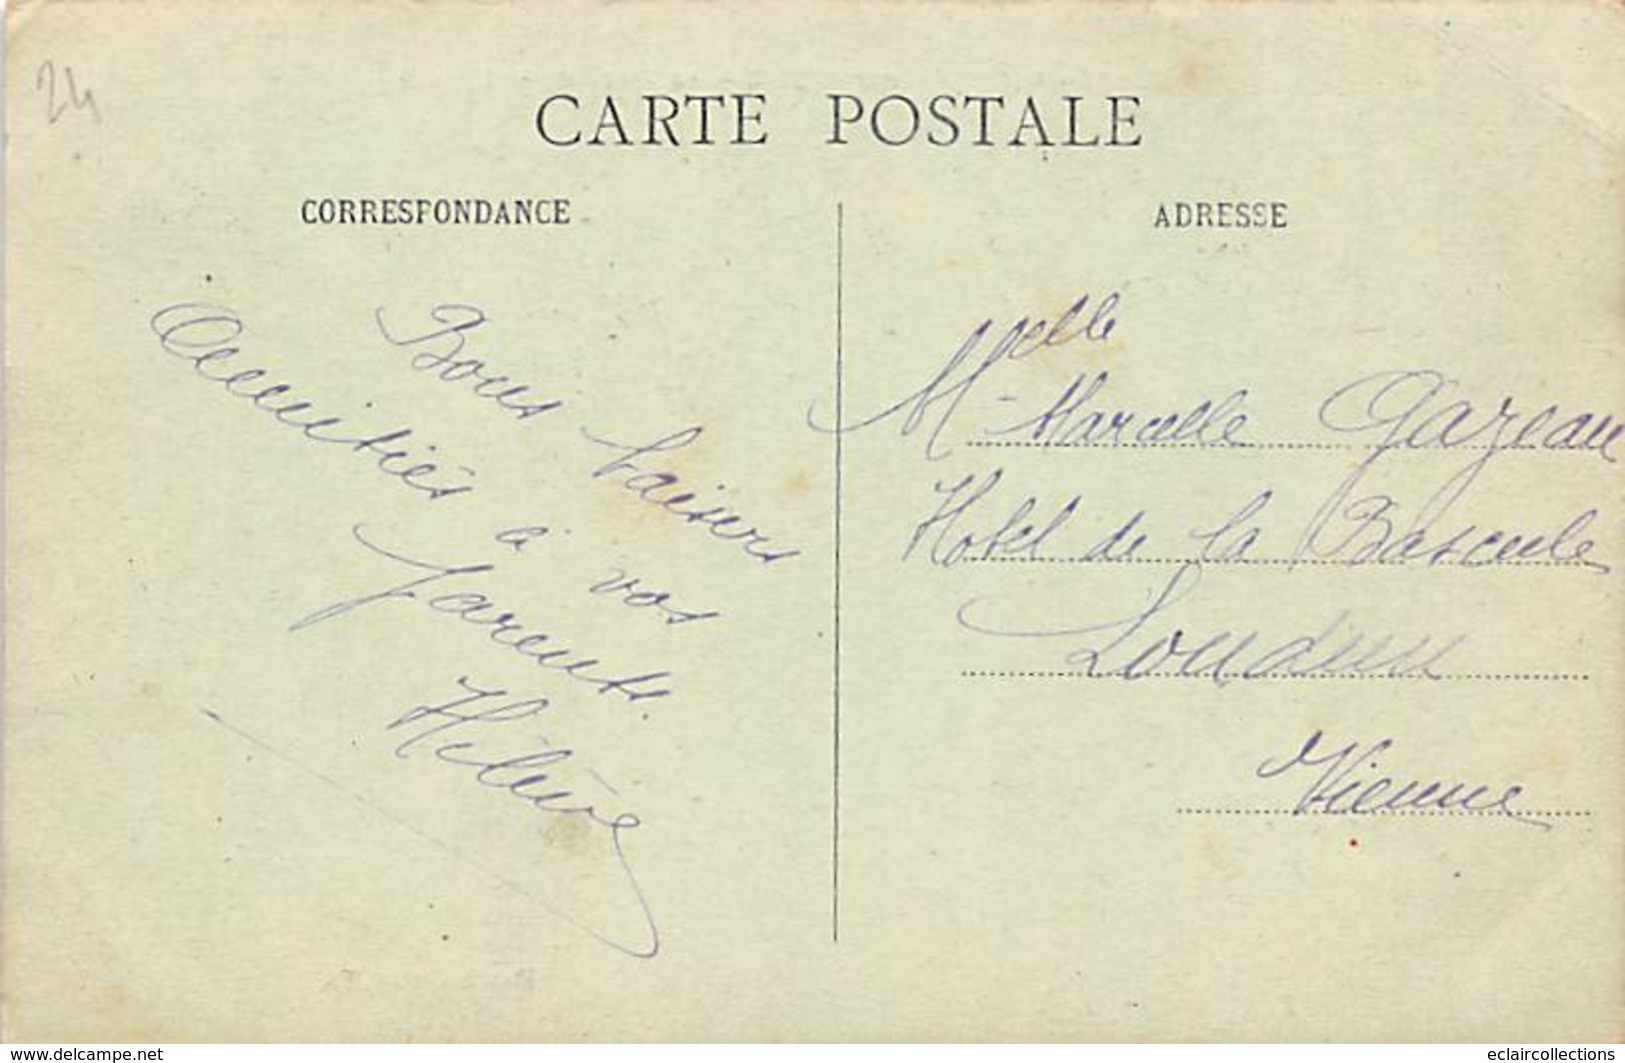 24
CARTE POSTALE
CORRESPONDANCE
ADRESSE
Bons baisers
Amitiés à vos
parents.
Hélène
Melle Marcelle Gazeau
Hotel de la Bascule
Loudun
Vienne
www.delcampe.net
eclaircollections